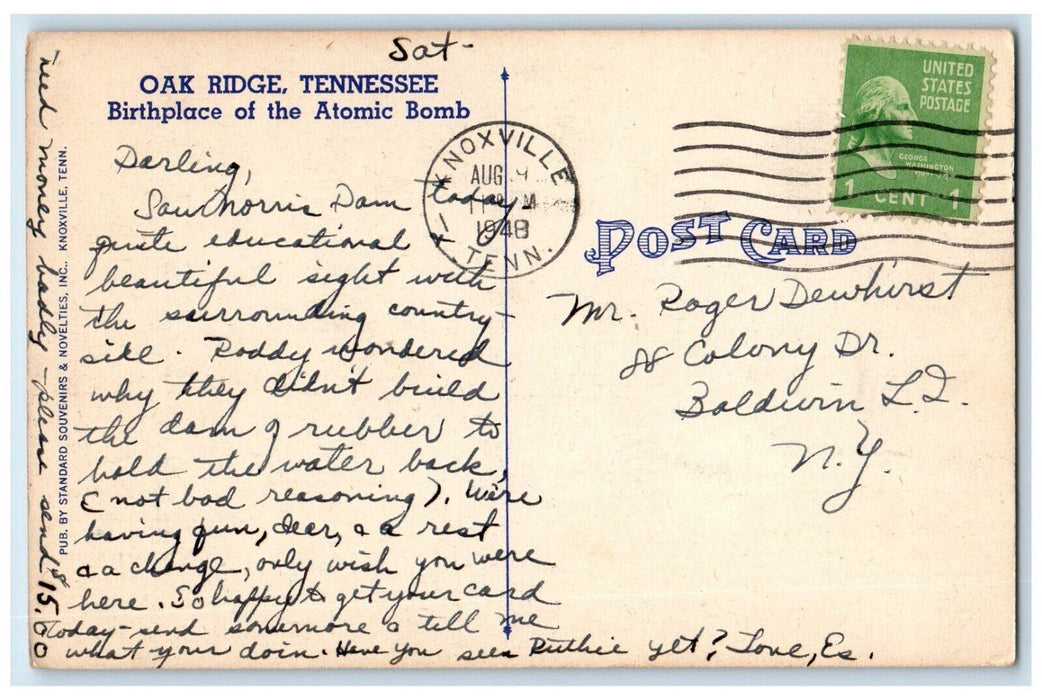 Sat-
OAK RIDGE, TENNESSEE
Birthplace of the Atomic Bomb
Darling,
Saw Norris Dam today-
quite educational
beautiful sight with
the surrounding country-
side. Roddy wondered
why they didn't build
the dam of rubber to
hold the water back,
(not bad reasoning). We're
having fun, dear, & a rest
& a change, only wish you were
here. So happy to get your card
today-send somemore & tell me
what your doin. Have you seen Ruthie yet? Love, Es.
need money badly - please send $15.00
PUB. BY STANDARD SOUVENIRS & NOVELTIES, INC., KNOXVILLE, TENN.
KNOXVILLE
AUG
1948
TENN.
UNITED
STATES
POSTAGE
GEORGE
WASHINGTON
1 CENT 1
POST CARD
Mr. Roger Dewhirst
Colony Dr.
Baldwin L.I.
N.Y.